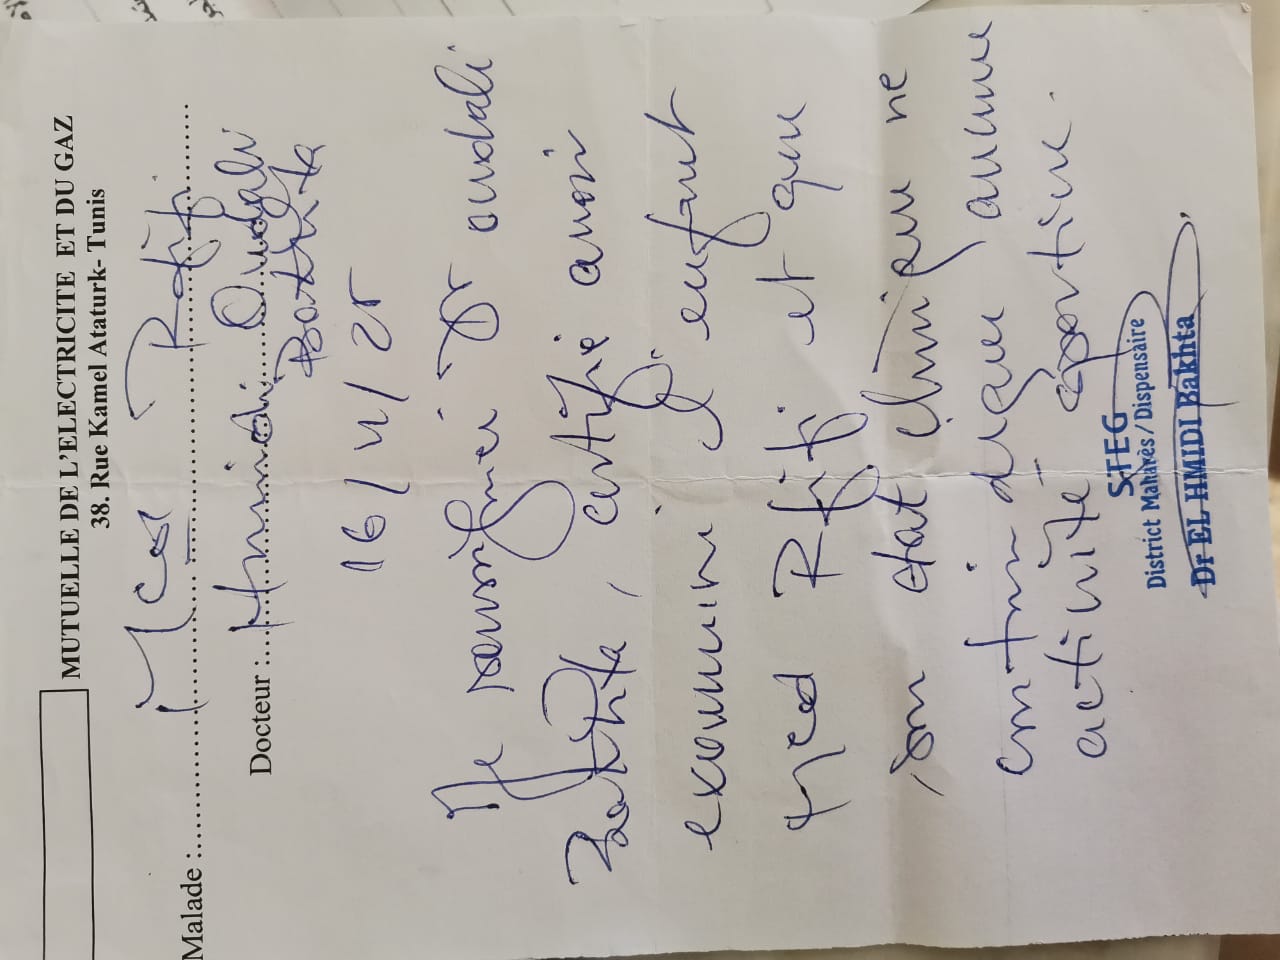 MUTUELLE DE L'ELECTRICITE ET DU GAZ
38. Rue Kamel Ataturk- Tunis
Malade : Rafif
Docteur : Hmidi Oudali
Bakhta
16/ /25
Je soussigné Dr oudali
Bakhta, certifie avoir
examiné l'enfant
Rfifi et que
son état clinique ne
contre aucune
activité sportive.
STEG
District Maharès / Dispensaire
Dr EL HMIDI Bakhta